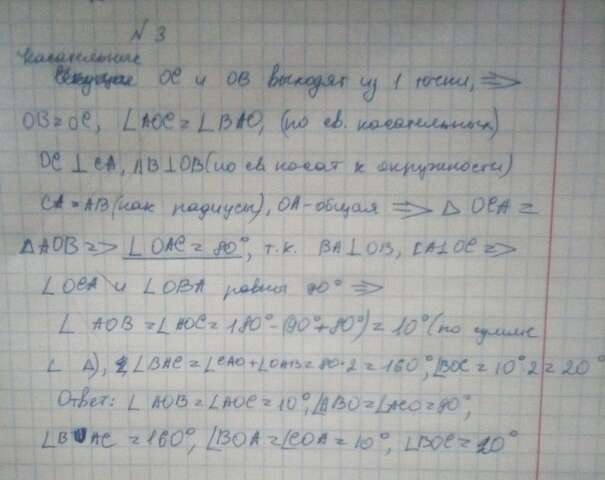 № 3
касательные
OC и OB выходят из 1 точки, =>
OB = OC, ∠AOC = ∠BAO, (по св. касательных)
OC ⊥ CA, AB ⊥ OB (по св касат к окружности)
CA = AB (как радиусы), OA - общая => Δ OCA =
ΔAOB => ∠OAC = 80°, т.к. BA ⊥ OB, CA ⊥ OC =>
∠OCA и ∠OBA равны 90° =>
∠ AOB = ∠AOC = 180° - (90° + 80°) = 10° (по сумме
∠ Δ), ∠BAC = ∠CAO + ∠OAB = 80·2 = 160°, ∠BOC = 10°·2 = 20°
Ответ: ∠ AOB = ∠AOC = 10°, ∠ABO = ∠ACO = 90°,
∠BAC = 160°, ∠BOA = ∠COA = 10°, ∠BOC = 20°